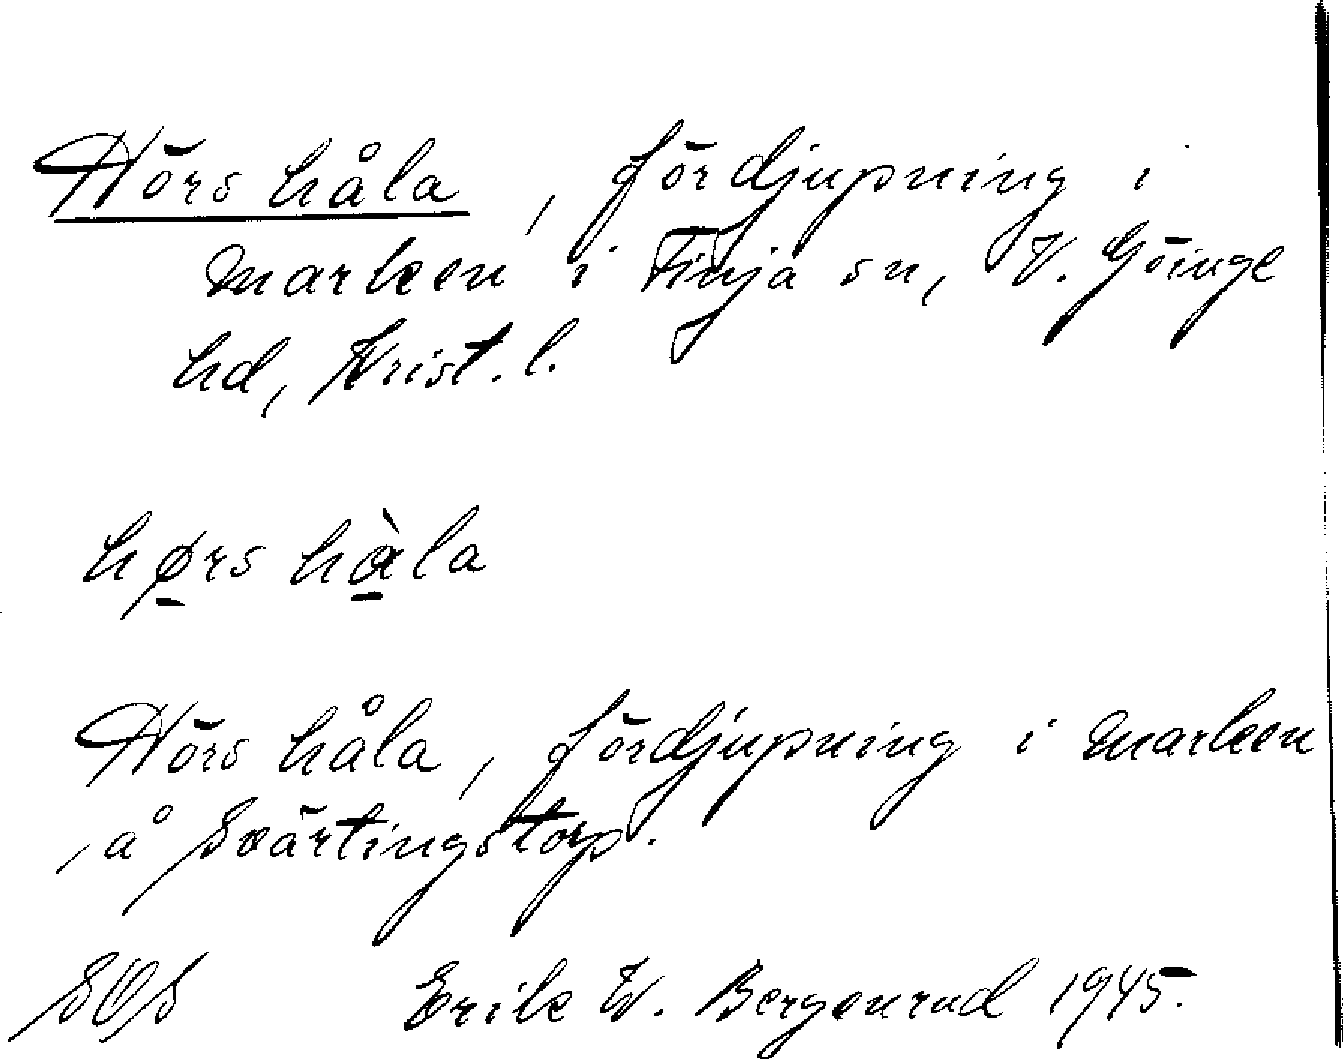 Hörs håla, fördjupning i
marken i Finja sn, V. Göinge
hd, Krist. l.
hø̱rs hà̱la
Hörs håla, fördjupning i marken
, å Svärtingstorp.
SOS Erik W. Bergenrud 1945.